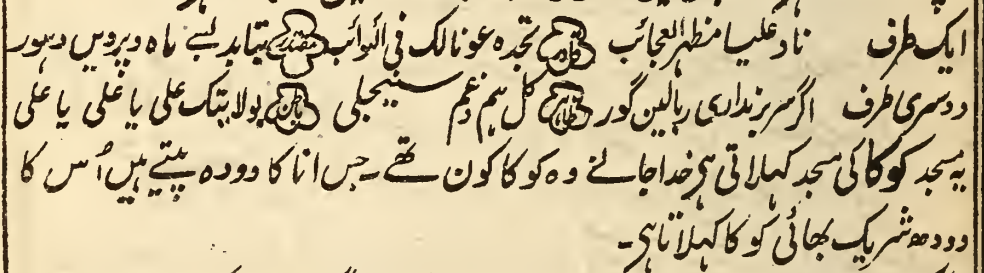 ایک طرف ناد علیا مظہر العجائب قادر تجدہ عونا لک فی النوائب مقتدر بتابد بسے ماہ و پرویں و ہور
دوسری طرف اگر سر بزنداری ز بالین گور طاہر کل ہم و غم سینجلی باطن بولایتک علی یا علی یا علی
یہ مسجد کوکا کی مسجد کہلاتی ہی خدا جانے وہ کوکا کون تھے ۔ جس انا کا دودہ پیتے ہیں اُس کا
دودھ شریک بھائی کوکا کہلاتا ہی ۔